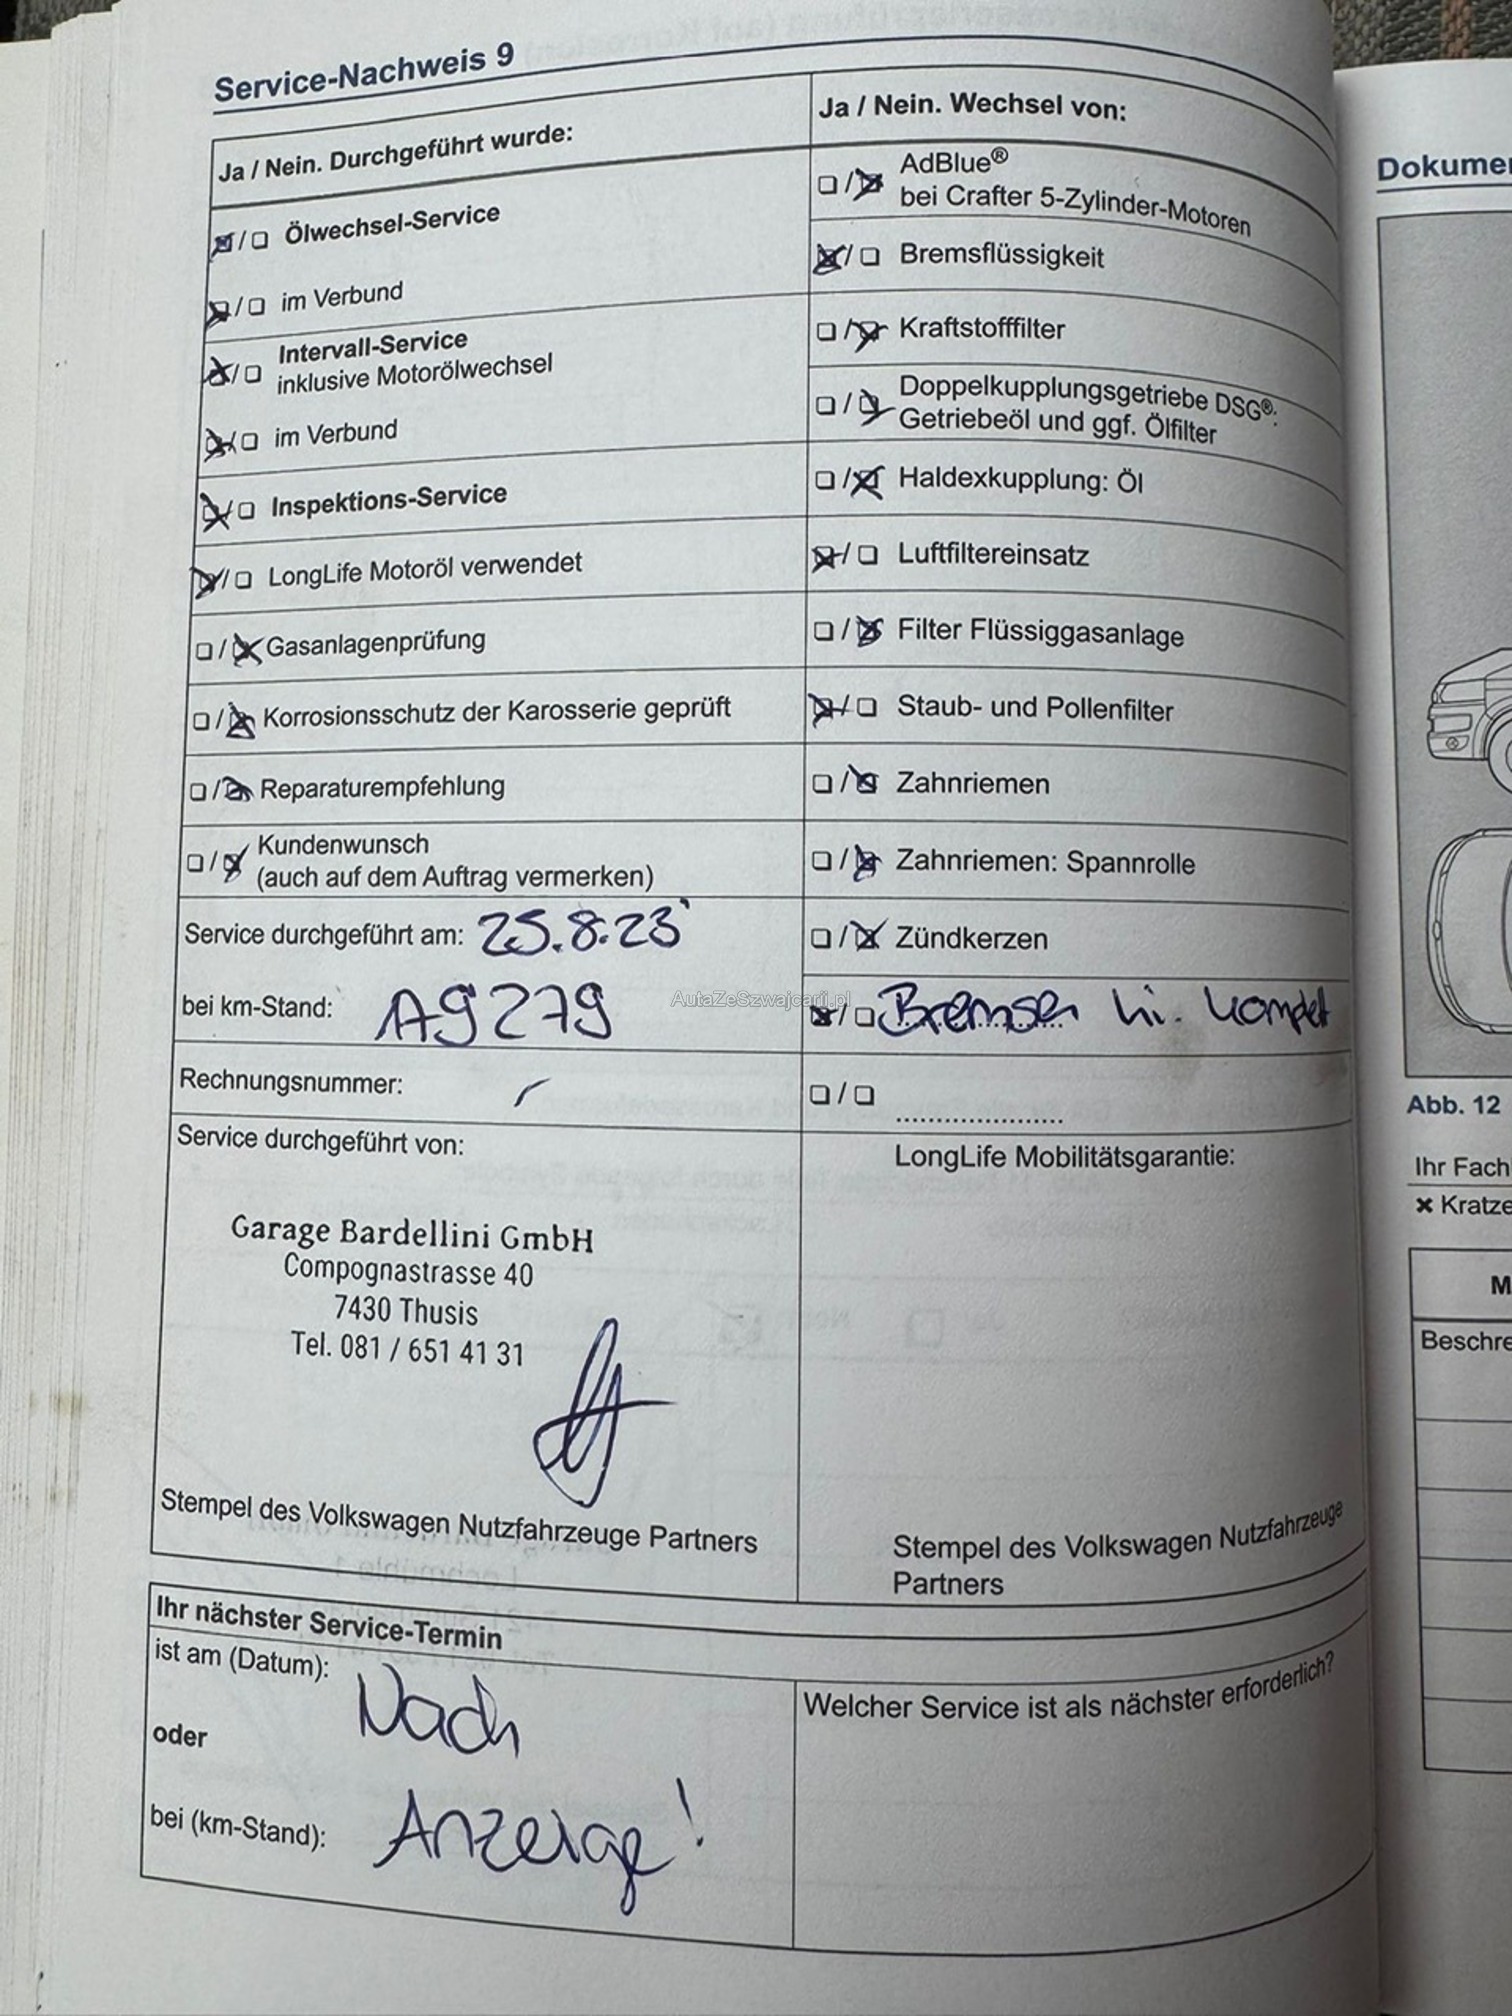 Service-Nachweis 9
Ja / Nein. Durchgeführt wurde:
Ölwechsel-Service
im Verbund
Intervall-Service
inklusive Motorölwechsel
im Verbund
Inspektions-Service
LongLife Motoröl verwendet
Gasanlagenprüfung
Korrosionsschutz der Karosserie geprüft
Reparaturempfehlung
Kundenwunsch
(auch auf dem Auftrag vermerken)
Service durchgeführt am: 25.8.23
bei km-Stand: 179279
Rechnungsnummer: /
Service durchgeführt von:
Garage Bardellini GmbH
Compognastrasse 40
7430 Thusis
Tel. 081 / 651 41 31
Stempel des Volkswagen Nutzfahrzeuge Partners
Ja / Nein. Wechsel von:
AdBlue®
bei Crafter 5-Zylinder-Motoren
Bremsflüssigkeit
Kraftstofffilter
Doppelkupplungsgetriebe DSG®:
Getriebeöl und ggf. Ölfilter
Haldexkupplung: Öl
Luftfiltereinsatz
Filter Flüssiggasanlage
Staub- und Pollenfilter
Zahnriemen
Zahnriemen: Spannrolle
Zündkerzen
AutaZeSzwajcarii.pl
Bremsen hi. komplet
LongLife Mobilitätsgarantie:
Stempel des Volkswagen Nutzfahrzeuge
Partners
Ihr nächster Service-Termin
ist am (Datum): Nach
oder
bei (km-Stand): Anzeige!
Welcher Service ist als nächster erforderlich?
Abb. 12
Ihr Fach
Kratze
M
Beschre